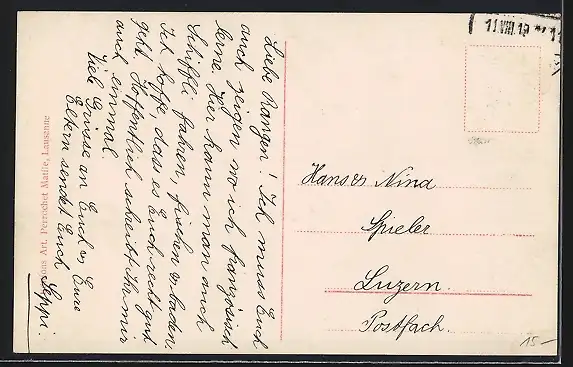 Liebe Rangen! Ich muss Euch
auch zeigen wo ich französisch
lerne. Hier kann man auch
Schiffli fahren, fischen & baden.
Ich hoffe, dass es Euch recht gut
geht. Hoffentlich schreibt Ihr mir
auch einmal.
Viele Grüsse an Euch & Eure
Eltern sendet Euch
Seppi.
Art. Perrochet Matile, Lausanne
Hans & Nina
Spieler
Luzern.
Postfach.
11.VIII.19
15-